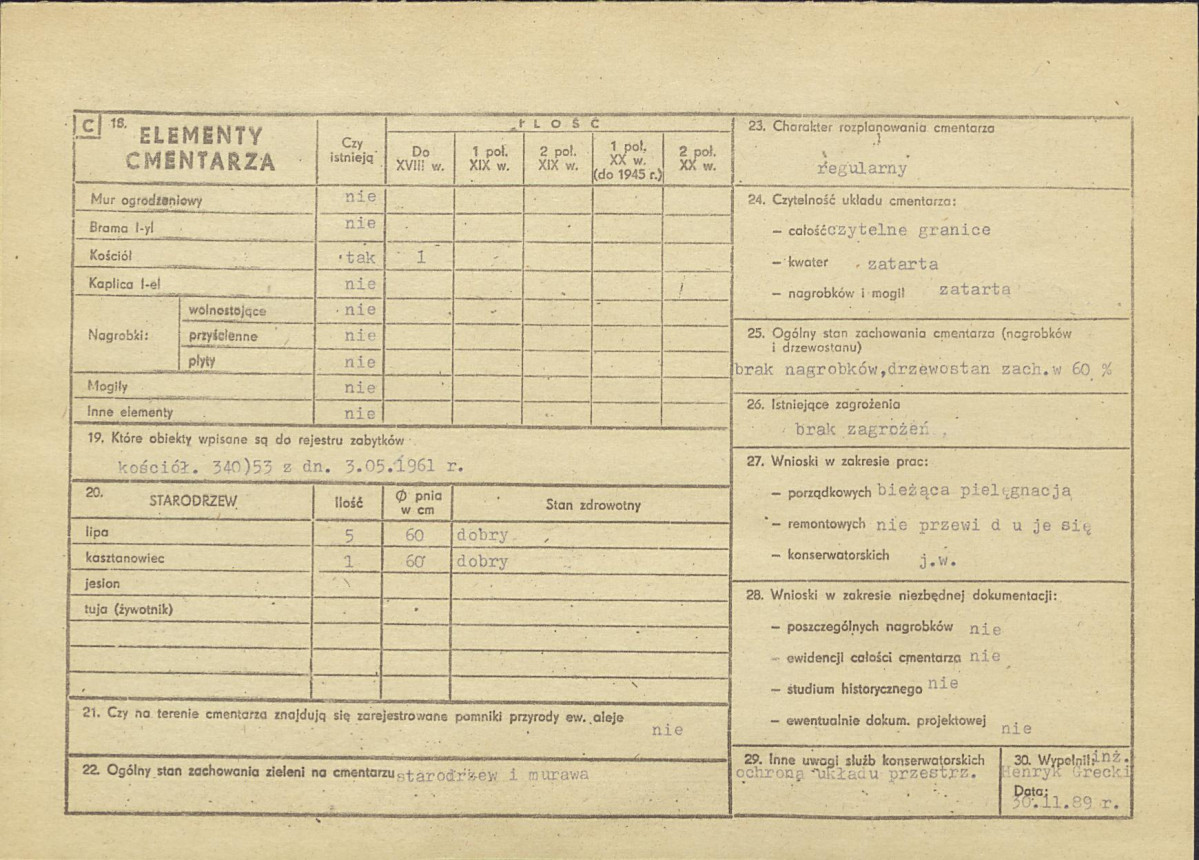 C 18. ELEMENTY CMENTARZA
Czy istnieją
ILOŚĆ
Do XVIII w.
1 poł. XIX w.
2 poł. XIX w.
1 poł. XX w. (do 1945 r.)
2 poł. XX w.
Mur ogrodzeniowy nie
Brama I-yl nie
Kościół tak 1
Kaplica I-el nie
Nagrobki:
wolnostojące nie
przyścienne nie
płyty nie
Mogiły nie
Inne elementy nie
19. Które obiekty wpisane są do rejestru zabytków
kościół. 340)53 z dn. 3.05.1961 r.
20. STARODRZEW Ilość Ø pnia w cm Stan zdrowotny
lipa 5 60 dobry
kasztanowiec 1 60 dobry
jesion
tuja (żywotnik)
21. Czy na terenie cmentarza znajdują się zarejestrowane pomniki przyrody ew. aleje
nie
22. Ogólny stan zachowania zieleni na cmentarzu starodrzew i murawa
23. Charakter rozplanowania cmentarza
regularny
24. Czytelność układu cmentarza:
– całość czytelne granice
– kwater zatarta
– nagrobków i mogił zatarta
25. Ogólny stan zachowania cmentarza (nagrobków
i drzewostanu)
brak nagrobków,drzewostan zach.w 60 %
26. Istniejące zagrożenia
brak zagrożeń
27. Wnioski w zakresie prac:
– porządkowych bieżąca pielęgnacją
– remontowych nie przewi d u je się
– konserwatorskich j.w.
28. Wnioski w zakresie niezbędnej dokumentacji:
– poszczególnych nagrobków nie
– ewidencji całości cmentarza nie
– studium historycznego nie
– ewentualnie dokum. projektowej nie
29. Inne uwagi służb konserwatorskich
ochroną układu przestrz.
30. Wypełnił: inż.
Henryk Grecki
Data:
30.11.89 r.